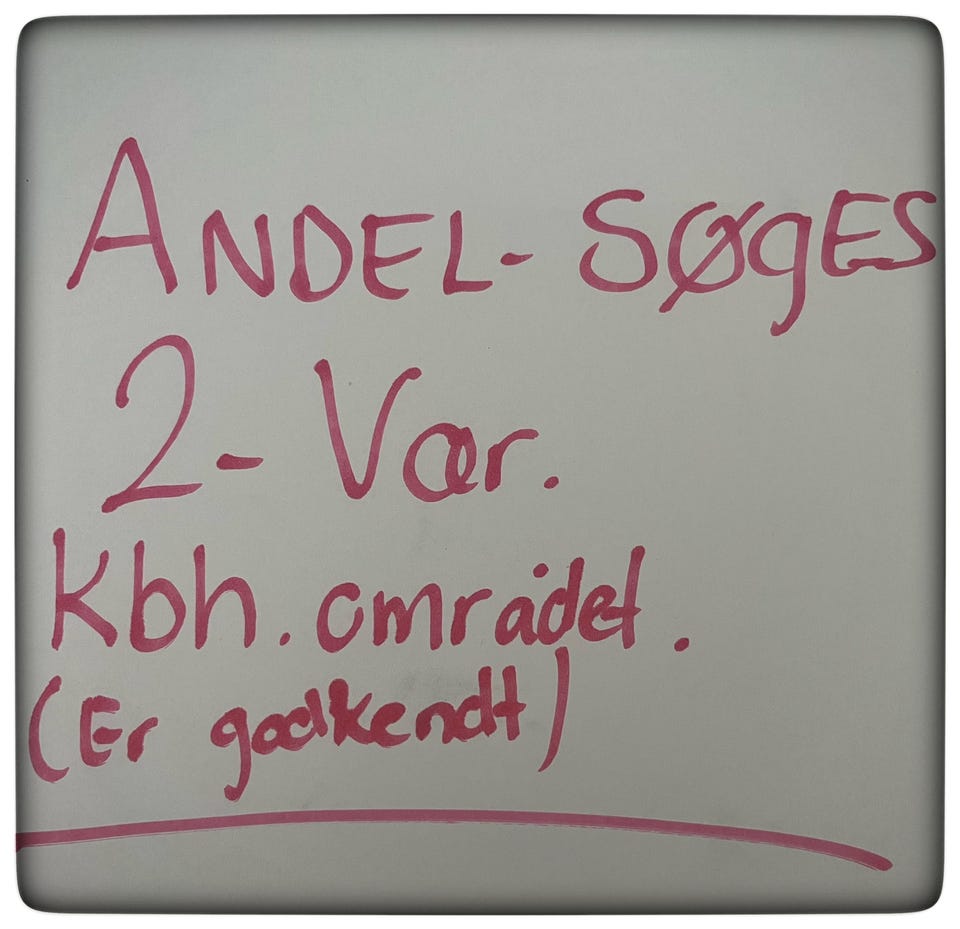 ANDEL- SØgES
2- Vær.
Kbh. området.
(Er godkendt)